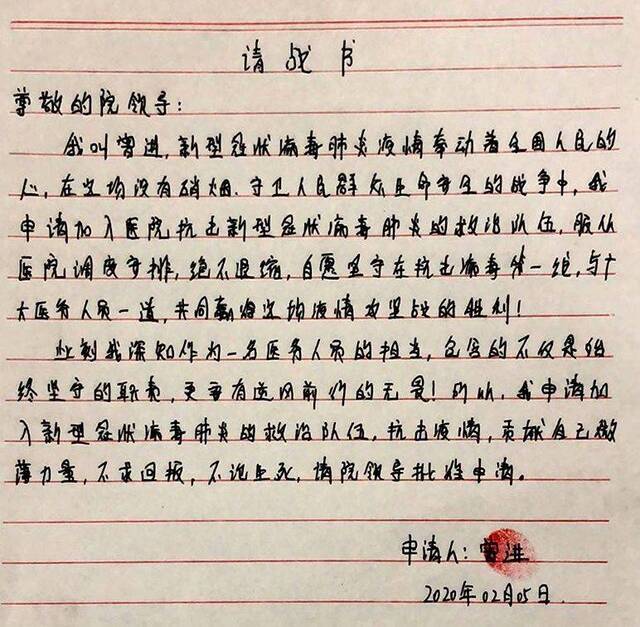 请战书
尊敬的院领导：
我叫曾进，新型冠状病毒肺炎疫情牵动着全国人民的
心，在这场没有硝烟、守卫人民群众生命安全的战争中，我
申请加入医院抗击新型冠状病毒肺炎的救治队伍，服从
医院调度安排，绝不退缩，自愿坚守在抗击病毒第一线，与广
大医务人员一道，共同赢得这场疫情攻坚战的胜利！
此刻我深知作为一名医务人员的担当，包含的不仅是始
终坚守的职责，更要有逆风前行的无畏！所以，我申请加
入新型冠状病毒肺炎的救治队伍，抗击疫情，贡献自己微
薄力量，不求回报，不论生死，请院领导批准申请。
申请人：曾进
2020年02月05日